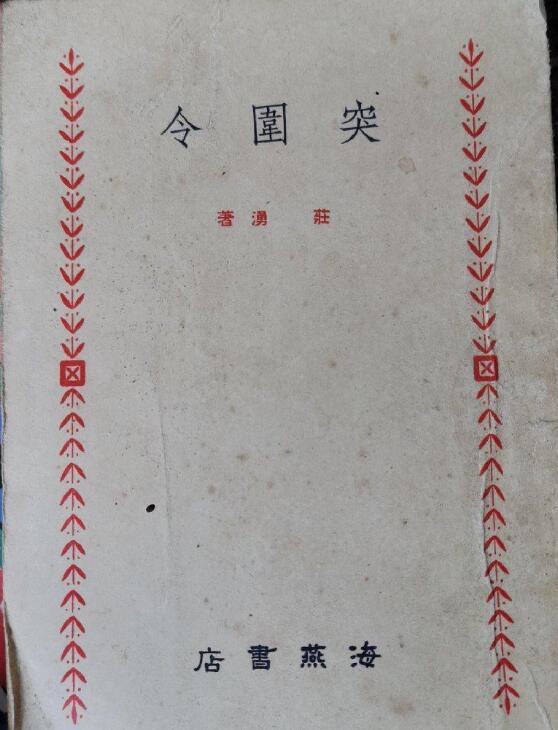 突圍令
莊湧著
海燕書店